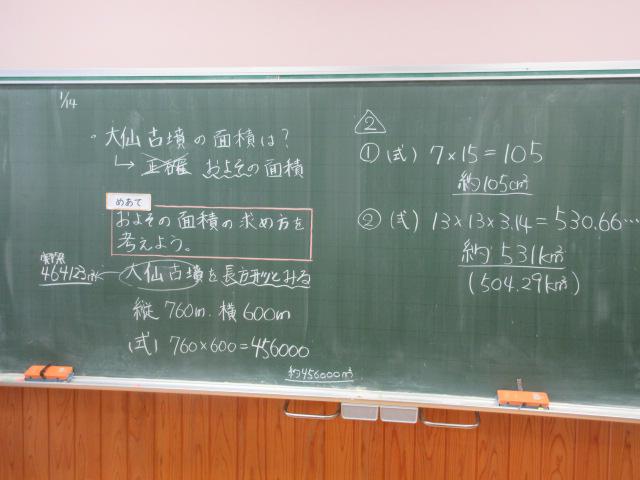 1/14
・大仙古墳の面積は?
↳ 正確 およその面積
めあて
およその面積の求め方を
考えよう。
実際
464123㎡ 大仙古墳を長方形とみる
縦 760m. 横 600m
(式) 760×600=456000
約456000㎡
2
① (式) 7×15=105
約105c㎡
② (式) 13×13×3.14=530.66…
約531k㎡
(504.29k㎡)